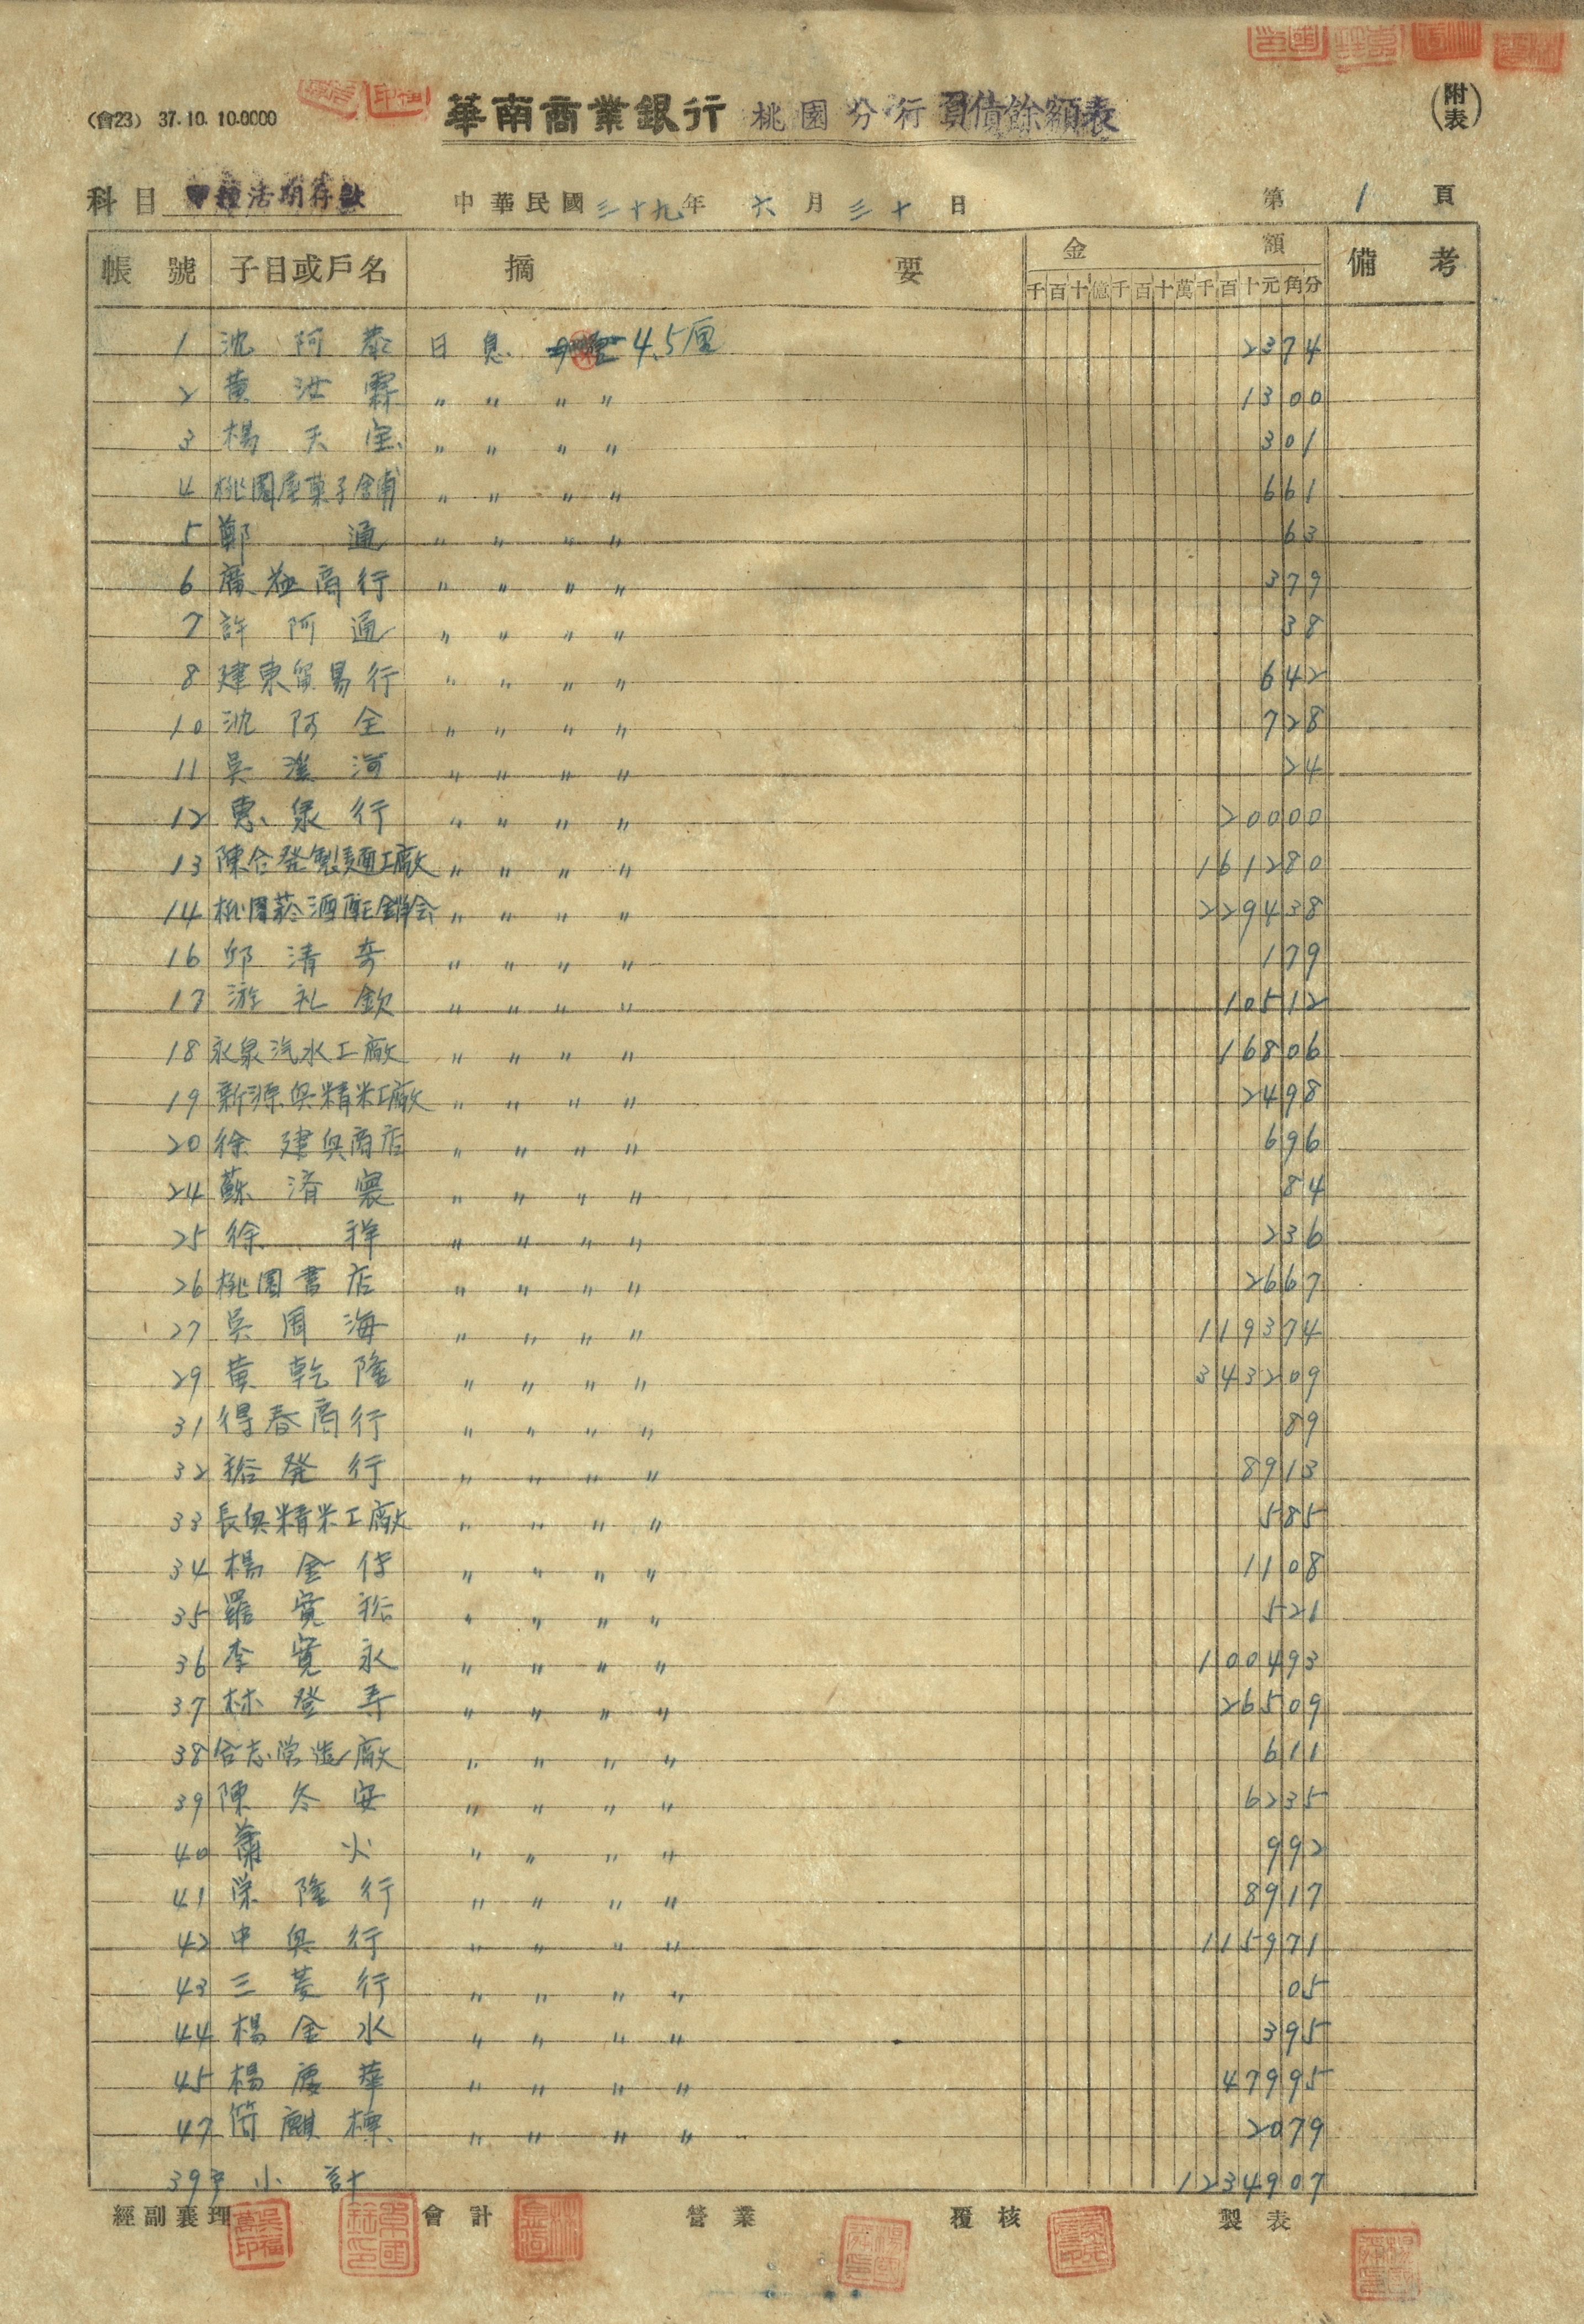 (會23) 37.10.10.0000 華南商業銀行 桃園分行 負債餘額表 (附表)
科目 甲種活期存款 中華民國三十九年 六月三十日 第1頁
帳號 子目或戶名 摘要 金額 備考
千百十億千百十萬千百十元角分
1 沈阿泰 日息 4.5厘 2374
2 黃汝霖 〃 〃 〃 〃 1300
3 楊天宝 〃 〃 〃 〃 301
4 桃園座菓子舖 〃 〃 〃 〃 661
5 鄭通 〃 〃 〃 〃 63
6 廣益商行 〃 〃 〃 〃 379
7 許阿通 〃 〃 〃 〃 38
8 建東貿易行 〃 〃 〃 〃 642
10 沈阿全 〃 〃 〃 〃 728
11 吳瀅河 〃 〃 〃 〃 24
12 惠泉行 〃 〃 〃 〃 20000
13 陳合発製麵工廠 〃 〃 〃 〃 161280
14 桃園菸酒配銷会 〃 〃 〃 〃 229438
16 邱清奇 〃 〃 〃 〃 179
17 游礼欽 〃 〃 〃 〃 10512
18 永泉汽水工廠 〃 〃 〃 〃 16806
19 新源興精米工廠 〃 〃 〃 〃 2498
20 徐建興商店 〃 〃 〃 〃 696
24 蘇濟寰 〃 〃 〃 〃 84
25 徐祥 〃 〃 〃 〃 236
26 桃園書店 〃 〃 〃 〃 2667
27 吳周海 〃 〃 〃 〃 119374
29 黃乾隆 〃 〃 〃 〃 343209
31 得春商行 〃 〃 〃 〃 89
32 裕発行 〃 〃 〃 〃 8913
33 長興精米工廠 〃 〃 〃 〃 585
34 楊金傳 〃 〃 〃 〃 1108
35 羅寬裕 〃 〃 〃 〃 521
36 李寬永 〃 〃 〃 〃 100493
37 林登寿 〃 〃 〃 〃 26509
38 合志営造廠 〃 〃 〃 〃 611
39 陳冬安 〃 〃 〃 〃 6235
40 蕭火 〃 〃 〃 〃 992
41 栄隆行 〃 〃 〃 〃 8917
42 中興行 〃 〃 〃 〃 115971
43 三菱行 〃 〃 〃 〃 05
44 楊金水 〃 〃 〃 〃 395
45 楊慶華 〃 〃 〃 〃 47995
47 簡麒樟 〃 〃 〃 〃 2079
39戶 小計 1234907
經副襄理 會計 營業 覆核 製表